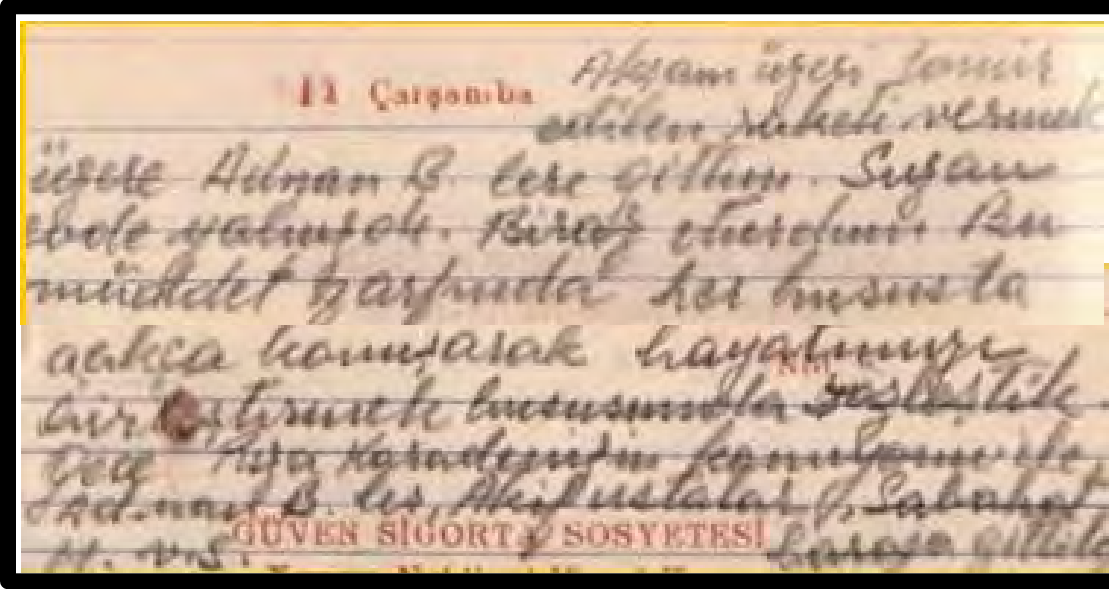 11 Çarşamba
Akşam üzeri tamir
edilen paketi vermek
üzere Adnan B. lere gittim. Suzan
evde yalnızdı. Biraz oturdum Bu
müddet zarfında her hususta
açıkça konuşarak hayatımızı
birleştirmek hususunda sözleştik.
Gece Rıza Karadenizin kamyonu ile
Adnan B. ler, Akif ustalar, Sabahat
H. v.s. gittik
GÜVEN SİGORTA SOSYETESİ